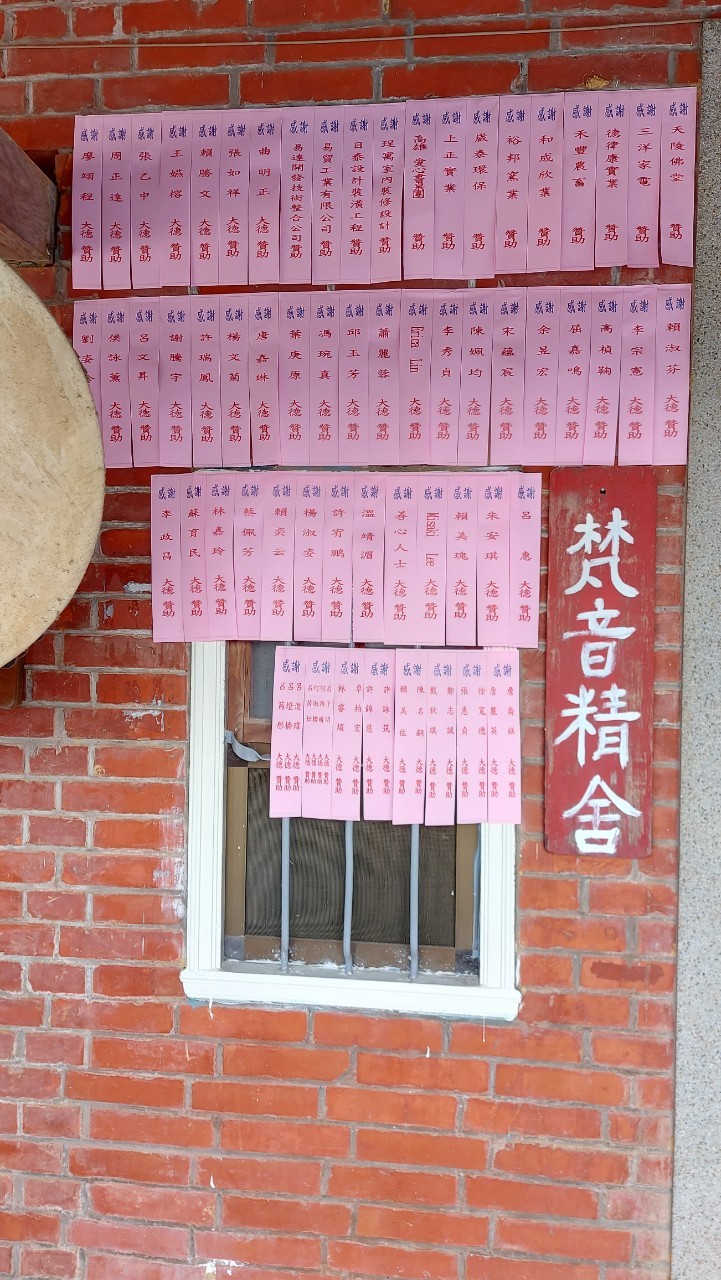 感謝 天陵佛堂 贊助
感謝 三洋家電 贊助
感謝 德律康實業 贊助
感謝 禾豐農畜 贊助
感謝 和成欣業 贊助
感謝 裕邦窯業 贊助
感謝 崴泰環保 贊助
感謝 上正實業 贊助
感謝 高雄 愛心 贊助
感謝 珵寓室內裝修設計 贊助
感謝 日泰設計裝潢工程 贊助
感謝 易貿工業有限公司 贊助
感謝 易達開發技術整合公司 贊助
感謝 曲明正 大德 贊助
感謝 張如祥 大德 贊助
感謝 賴勝文 大德 贊助
感謝 王嬿榕 大德 贊助
感謝 張乙中 大德 贊助
感謝 周正達 大德 贊助
感謝 廖翊程 大德 贊助
感謝 賴淑芬 大德 贊助
感謝 李宗憲 大德 贊助
感謝 高楨鞠 大德 贊助
感謝 屈嘉鳴 大德 贊助
感謝 余昱宏 大德 贊助
感謝 宋蘊宸 大德 贊助
感謝 陳姵均 大德 贊助
感謝 李秀貞 大德 贊助
感謝 Erica Lin 大德 贊助
感謝 蕭麗蓉 大德 贊助
感謝 邱玉芳 大德 贊助
感謝 馮琬真 大德 贊助
感謝 葉庚原 大德 贊助
感謝 唐嘉琳 大德 贊助
感謝 楊文菊 大德 贊助
感謝 許瑞鳳 大德 贊助
感謝 謝騰宇 大德 贊助
感謝 呂文昇 大德 贊助
感謝 侯詠薰 大德 贊助
感謝 劉姿 大德 贊助
感謝 呂惠 大德 贊助
感謝 朱安琪 大德 贊助
感謝 賴美瑰 大德 贊助
感謝 Misuki Lee 大德 贊助
感謝 善心人士 大德 贊助
感謝 溫靖湄 大德 贊助
感謝 許宥鵬 大德 贊助
感謝 楊淑姿 大德 贊助
感謝 賴奕云 大德 贊助
感謝 蔡佩芳 大德 贊助
感謝 林嘉玲 大德 贊助
感謝 蘇育民 大德 贊助
感謝 李政昌 大德 贊助
梵音精舍
感謝 詹麗英 徐寬德 大德 贊助
感謝 張惠貞 鄭志誠 大德 贊助
感謝 戴秋琪 大德 贊助
感謝 賴美佐 大德 贊助
感謝 許詠筑 許錦慧 大德 贊助
感謝 卓柏宏 林睿頡 大德 贊助